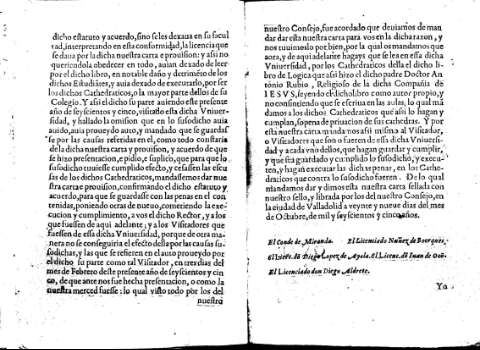 dicho estatuto y acuerdo, sino se les dexaua en su facul
tad, interpretando en esta conformidad, la licencia que
se daua por la dicha nuestra carta e prouision: y assi no
queriendola obedecer en todo, auian dexado de leer
por el dicho libro, en notable daño y detrimento de los
dichos Estudiãtes, y auia dexado de executarlo, por ser
los dichos Cathedraticos, o la mayor parte dellos de su
Colegio. Y assi el dicho su parte auiendo este presente
año de seyscientos y cinco, visitado essa dicha Vniuer-
sidad, y hallado la omission que en lo susodicho auia
auido, auia proueydo auto, y mandado que se guardas
se por las causas referidas en el, como todo constaria
de la dicha nuestra carta y prouision, y acuerdo de que
se hizo presentacion, e pidio, e suplico, que para que lo
susodicho tuuiesse cumplido efecto, y cessassen las escu
sas de los dichos Cathedraticos, mandassemos dar nues
tra carta e prouision, confirmando el dicho estatuto y
acuerdo, para que se guardasse con las penas en el con
tenidas, poniendo otras de nueuo, cometiendo la exe-
cucion y cumplimiento, a vos el dicho Rector, y a los
que fuessen de aqui adelante; y a los Visitadores que
fuessen de essa dicha Vniuersidad, porque de otra ma
nera no se conseguiria el efecto dello por las causas su-
sodichas, y las que se refieren en el auto proueydo por
el dicho su parte como tal Visitador, en treynta del
mes de Febrero deste presente año de seyscientos y cin
co, de que ante nos fue hecha presentacion, o como la
nuestra merced fuesse: lo qual visto todo por los del
nuestro
nuestro Consejo, fue acordado que deuiamos de man
dar dar esta nuestra carta para vos en la dicha razon, y
nos tuuimoslo por bien, por la qual os mandamos que
aora, y de aqui adelante hagays que se lea en essa dicha
Vniuersidad, por los Cathedraticos della el dicho li-
bro de Logica que assi hizo el dicho padre Doctor An
tonio Rubio, Religioso de la dicha Compañia de
IESVS, leyendo el dicho libro como autor propio, y
no consintiendo que se escriua en las aulas, lo qual mã
damos a los dichos Cathedraticos que assi lo hagan y
cumplan, so pena de priuacion de sus cathedras. Y por
esta nuestra carta mãdamos assi mismo al Visitador,
o Visitadores que son o fueren de essa dicha Vniuersi-
dad y a cada vno dellos, que hagan guardar y cumplir,
y que sea guardado y cumplido lo susodicho, y execu-
ten, y hagan executar las dichas penas, en los Cathe-
draticos que contra lo susodicho fueren. De lo qual
mandamos dar y dimos esta nuestra carta sellada con
nuestro sello, y librada por los del nuestro Consejo, en
la ciudad de Valladolid a veynte y nueue dias del mes
de Octubre, de mil y seyscientos y cinco años.
El Conde de Miranda. El Licenciado Nuñez de Bohorques.
El Licẽc. dõ Diego Lopez de Ayala. El Licenc. dõ Iuan de Ocõ.
El Licenciado don Diego Aldrete.
Yo